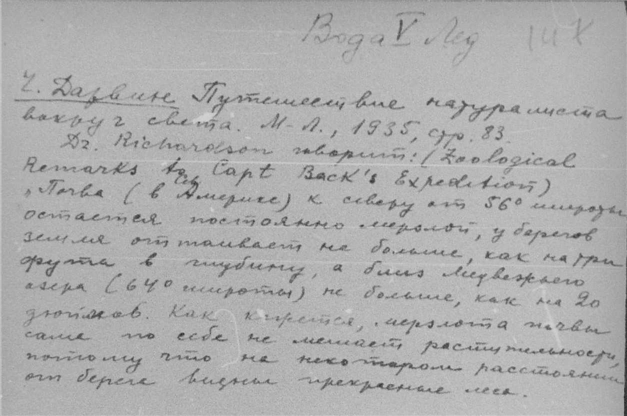 Вода V Лед III X
Ч. Дарвин Путешествие натуралиста
вокруг света. М-Л., 1935, стр. 83.
Dr. Richardson говорит: (Zoological
Remarks to Capt Back's Expedition)
„Почва (в Сев Америке) к северу от 56° широты
остается постоянно мерзлой, у берегов
земля оттаивает не больше, как на три
фута в глубину, а близ Медвежьего
озера (64° широты) не больше, как на 20
дюймов. Как кажется, мерзлота почвы
сама по себе не мешает растительности,
потому что на некотором расстоянии
от берега видны прекрасные леса.